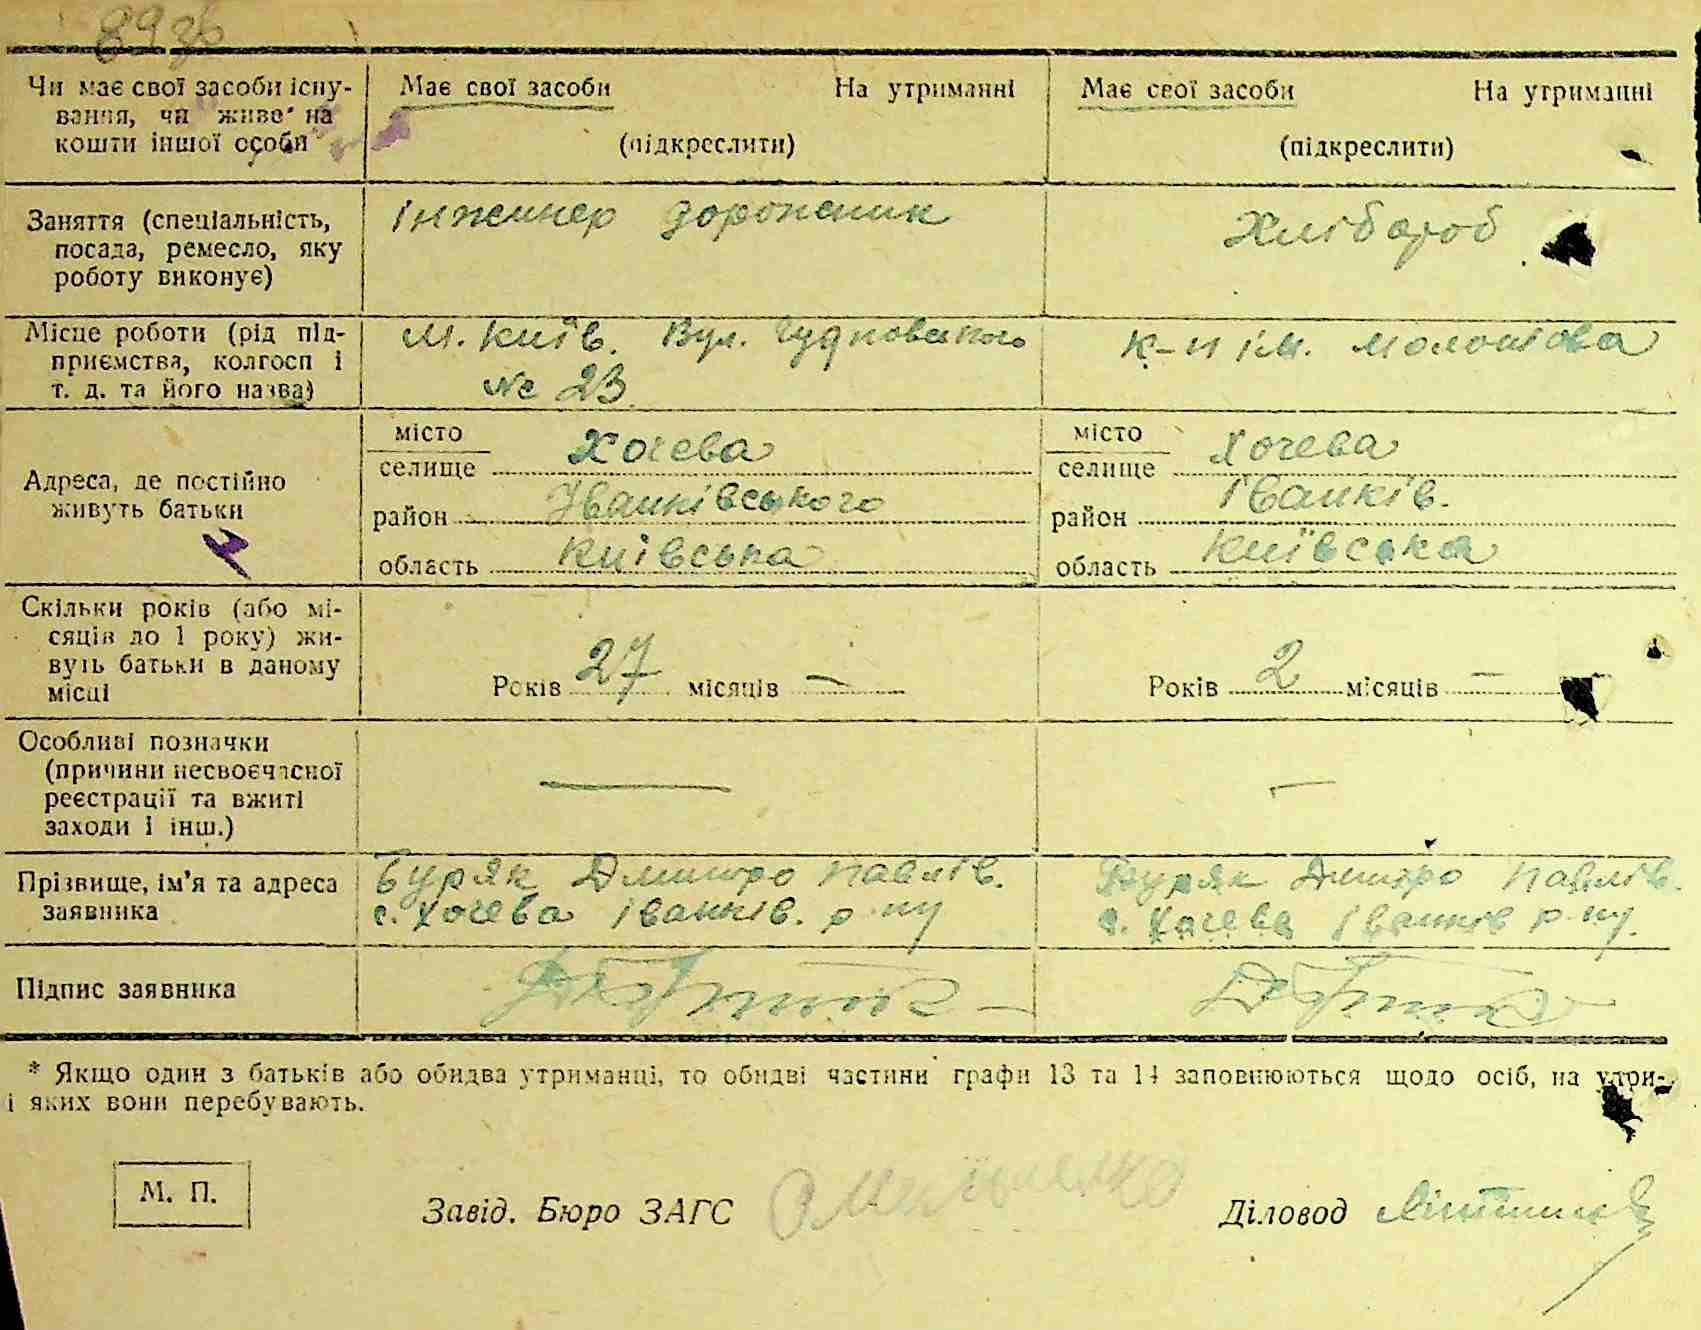 89зв
Чи має свої засоби існу-
вання, чи живе на
кошти іншої особи
Має свої засоби На утриманні
(підкреслити)
Має свої засоби На утриманні
(підкреслити)
Заняття (спеціальність,
посада, ремесло, яку
роботу виконує)
Інжинер дорожник
Хлібороб
Місце роботи (рід під-
приємства, колгосп і
т. д. та його назва)
М. Київ. Вул. Чудновського
№ 23
к-п ім. Молотова
Адреса, де постійно
живуть батьки
місто
селище Хочева
район Іванківського
область Київська
місто
селище Хочева
район Іванків.
область Київська
Скільки років (або мі-
сяців до 1 року) жи-
вуть батьки в даному
місці
Років 27 місяців —
Років 2 місяців —
Особливі позначки
(причини несвоєчасної
реєстрації та вжиті
заходи і інш.)
—
—
Прізвище, ім'я та адреса
заявника
Буряк Дмитро Павлів.
с. Хочева Іванків. р-ну
Буряк Дмитро Павлів.
с. Хочева Іванків р-ну.
Підпис заявника
* Якщо один з батьків або обидва утриманці, то обидві частини графи 13 та 14 заповнюються щодо осіб, на утри-
і яких вони перебувають.
М. П.
Завід. Бюро ЗАГС
Діловод